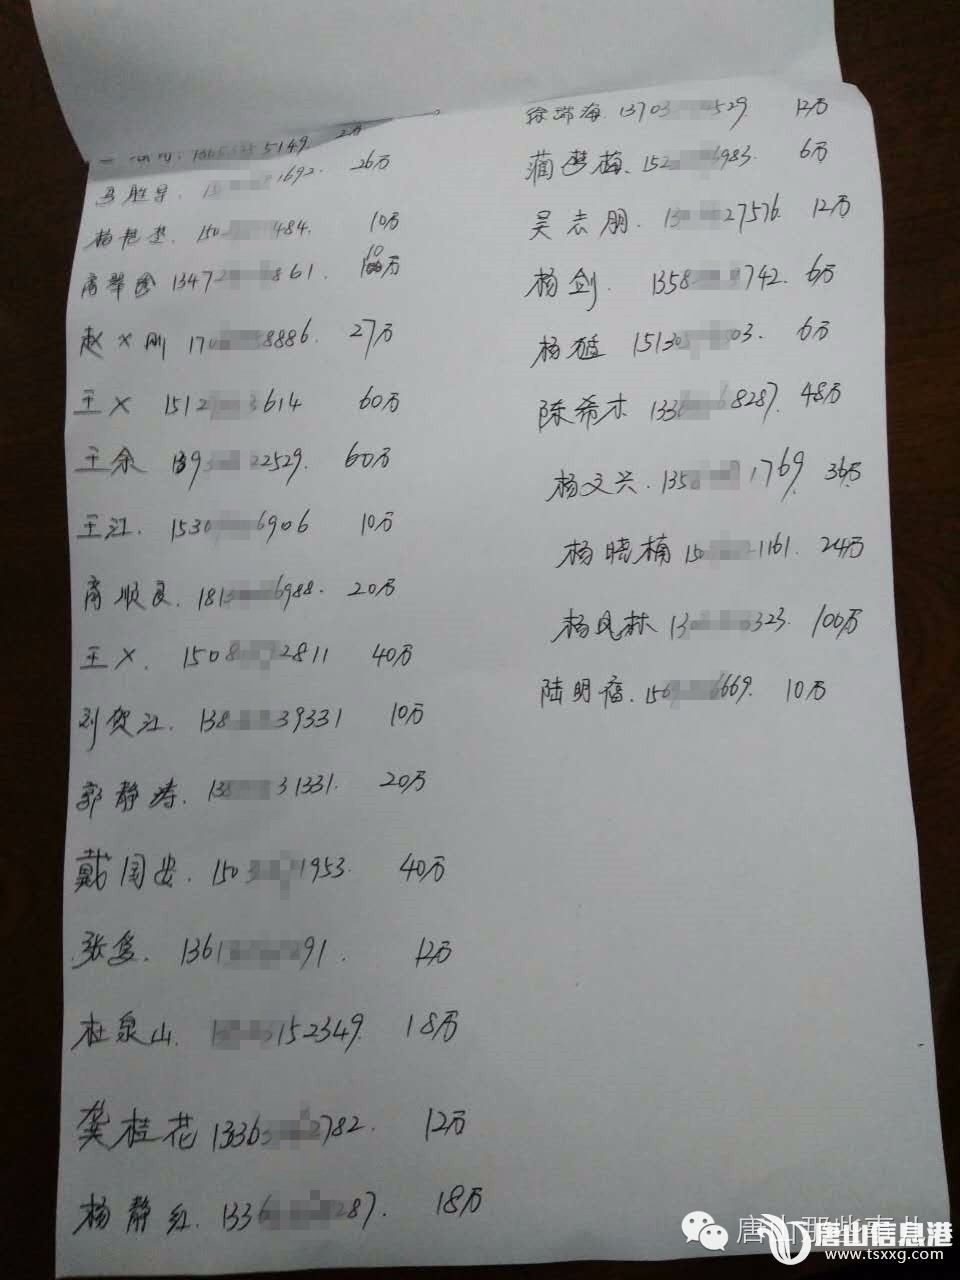 5149. 2万
1692. 26万
150 484. 10万
1347 861. 10 万
赵×刚 170 8886. 27万
王× 1512 3614 60万
王余 1393 22529. 60万
王江. 1530 6906 10万
商顺良. 181 6988. 20万
王×. 1508 2811 40万
刘贺江. 138 39331 10万
郭静涛. 13 31331. 20万
戴国安. 150 1953. 40万
张 1361 91. 12万
杜泉山. 1 152349. 18万
龚桂花 13363 2782. 12万
杨静红. 1336 287. 18万
徐瑞海. 13703 4529. 12万
蔺梦梅. 152 6983. 6万
吴志朋. 13 27576. 12万
杨剑. 1358 742. 6万
杨 15130 03. 6万
陈希木 133 68287. 48万
杨文兴. 1358 1769. 36万
杨晓楠 150 1161. 24万
杨凤林 13 323. 100万
陆明福. 1569 6669. 10万
唐山那些事儿
唐山信息港
www.tsxxg.com